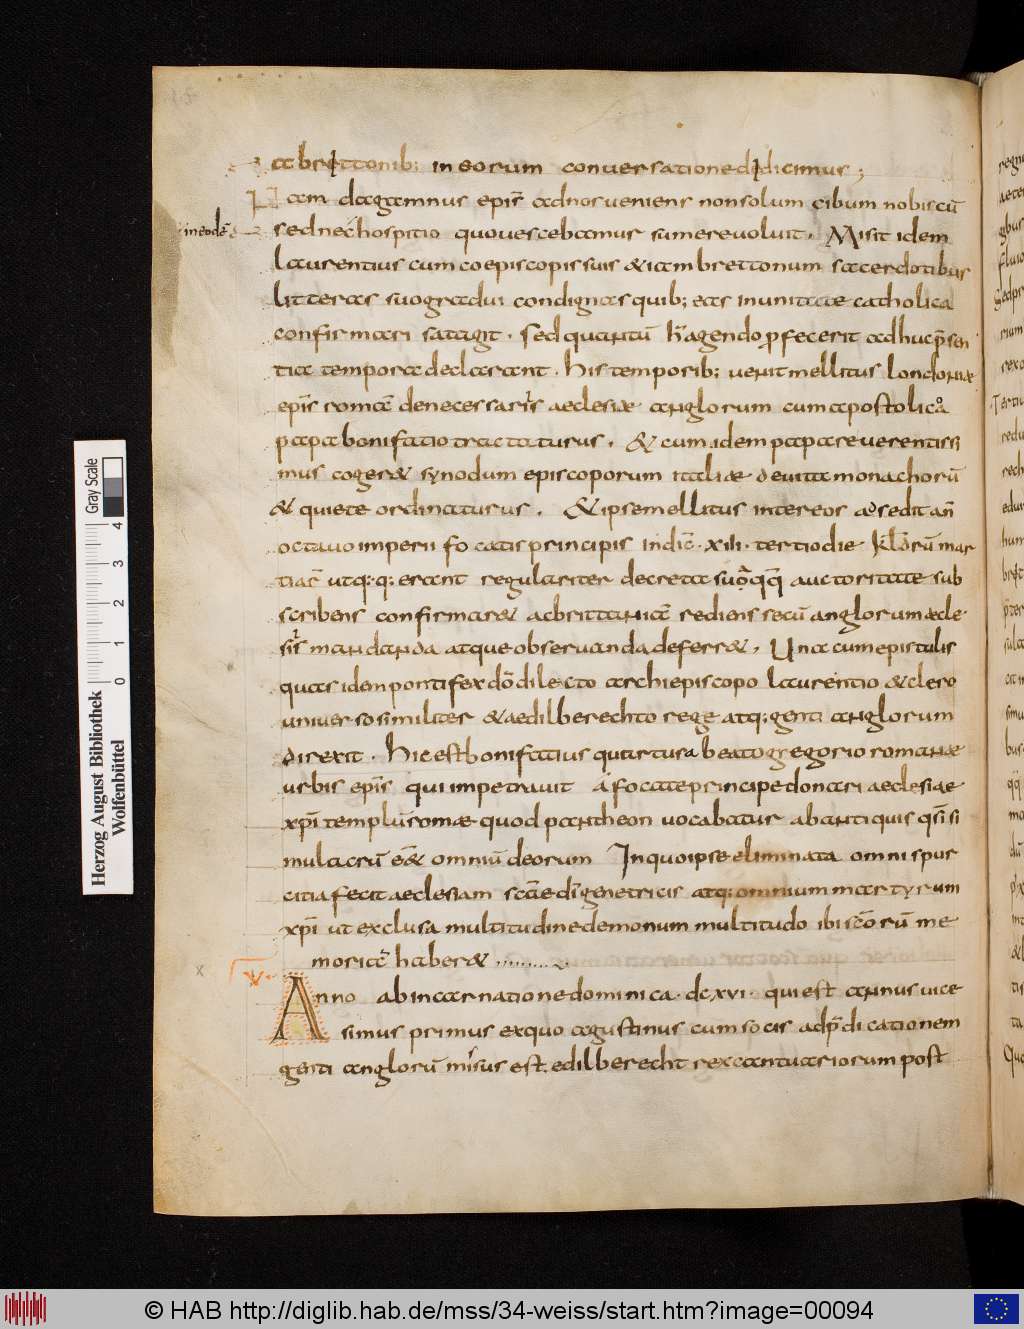 a brettonib; in eorum conuersatione didicimus;
Nam daganmus epis̄ ad nos ueniens non solum cibum nobiscū
in eodē
sed nec hospitio quo uescebamur sumere uoluit. Misit idem
laurentius cum coepiscopis suis & iam brettonum sacerdotibus
litteras suo gradui condignas quib; eas in unitate catholica
confirmari satagit. sed quantū hēc agendo ꝓfecerit adhuc p̄sen
tia tempora declarant. his temporib; uenit mellitus londoniae
epis̄ romā de necessariis aeclesiae anglorum cum apostolico
papa bonifatio tractaturus. & cum idem papa reuerentissi
mus coger& synodum episcoporum italiae de uita monachorū
& quiete ordinaturus. & ipse mellitus inter eos adsedit an̄
octauo imperii focatis principis indic̄. xiii. tertio die kl̄drū mar
tiar̄ ut q;. q; erant regulariter decreta sua quoq; auctoritate sub
scribens confirmar& ac brittaniā rediens secū anglorum aecle
siis mandanda atque obseruanda deferr&. Una cum epistulis
quas idem pontifex dō dilecto archiepiscopo laurentio & clero
uniuerso similiter & aedilberechto rege atq; genti anglorum
direxit. hic est bonifatius quartus a beato gregorio romanae
urbis epis̄ qui impetrauit a focate principe donari aeclesiae
xp̄i templū romae quod pantheon uocabatur ab antiquis q̄si si
mulacrū e&̄ omniū deorum In quo ipse eliminata omni spur
citia fecit aeclesiam sc̄ae dī genetricis atq; omnium martyrum
xp̄i ut exclusa multitudine demonum multitudo ibi sc̄orū me
moriā haber&
V
Anno ab incarnatione dominica. dcxvi. qui est annus uice
simus primus ex quo agustinus cum socis ad p̄dicationem
genti anglorū missus est. edilberecht rex cantuariorum post
Gray Scale
0 1 2 3 4
Herzog August Bibliothek
Wolfenbüttel
© HAB http://diglib.hab.de/mss/34-weiss/start.htm?image=00094